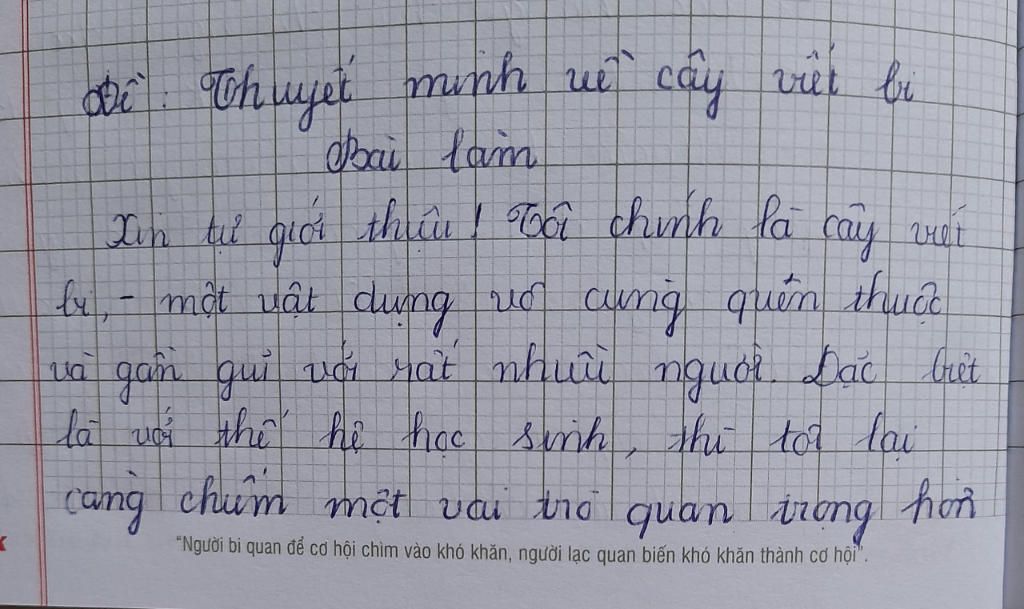 Đề: Thuyết minh về cây viết bi
Bài làm
Xin tự giới thiệu! Tôi chính là cây viết
bi, - một vật dụng vô cùng quên thuộc
và gần gũi với rất nhiều người. Đặc biệt
là với thế hệ học sinh, thì tôi lại
càng chiếm một vai trò quan trọng hơn
"Người bi quan để cơ hội chìm vào khó khăn, người lạc quan biến khó khăn thành cơ hội".